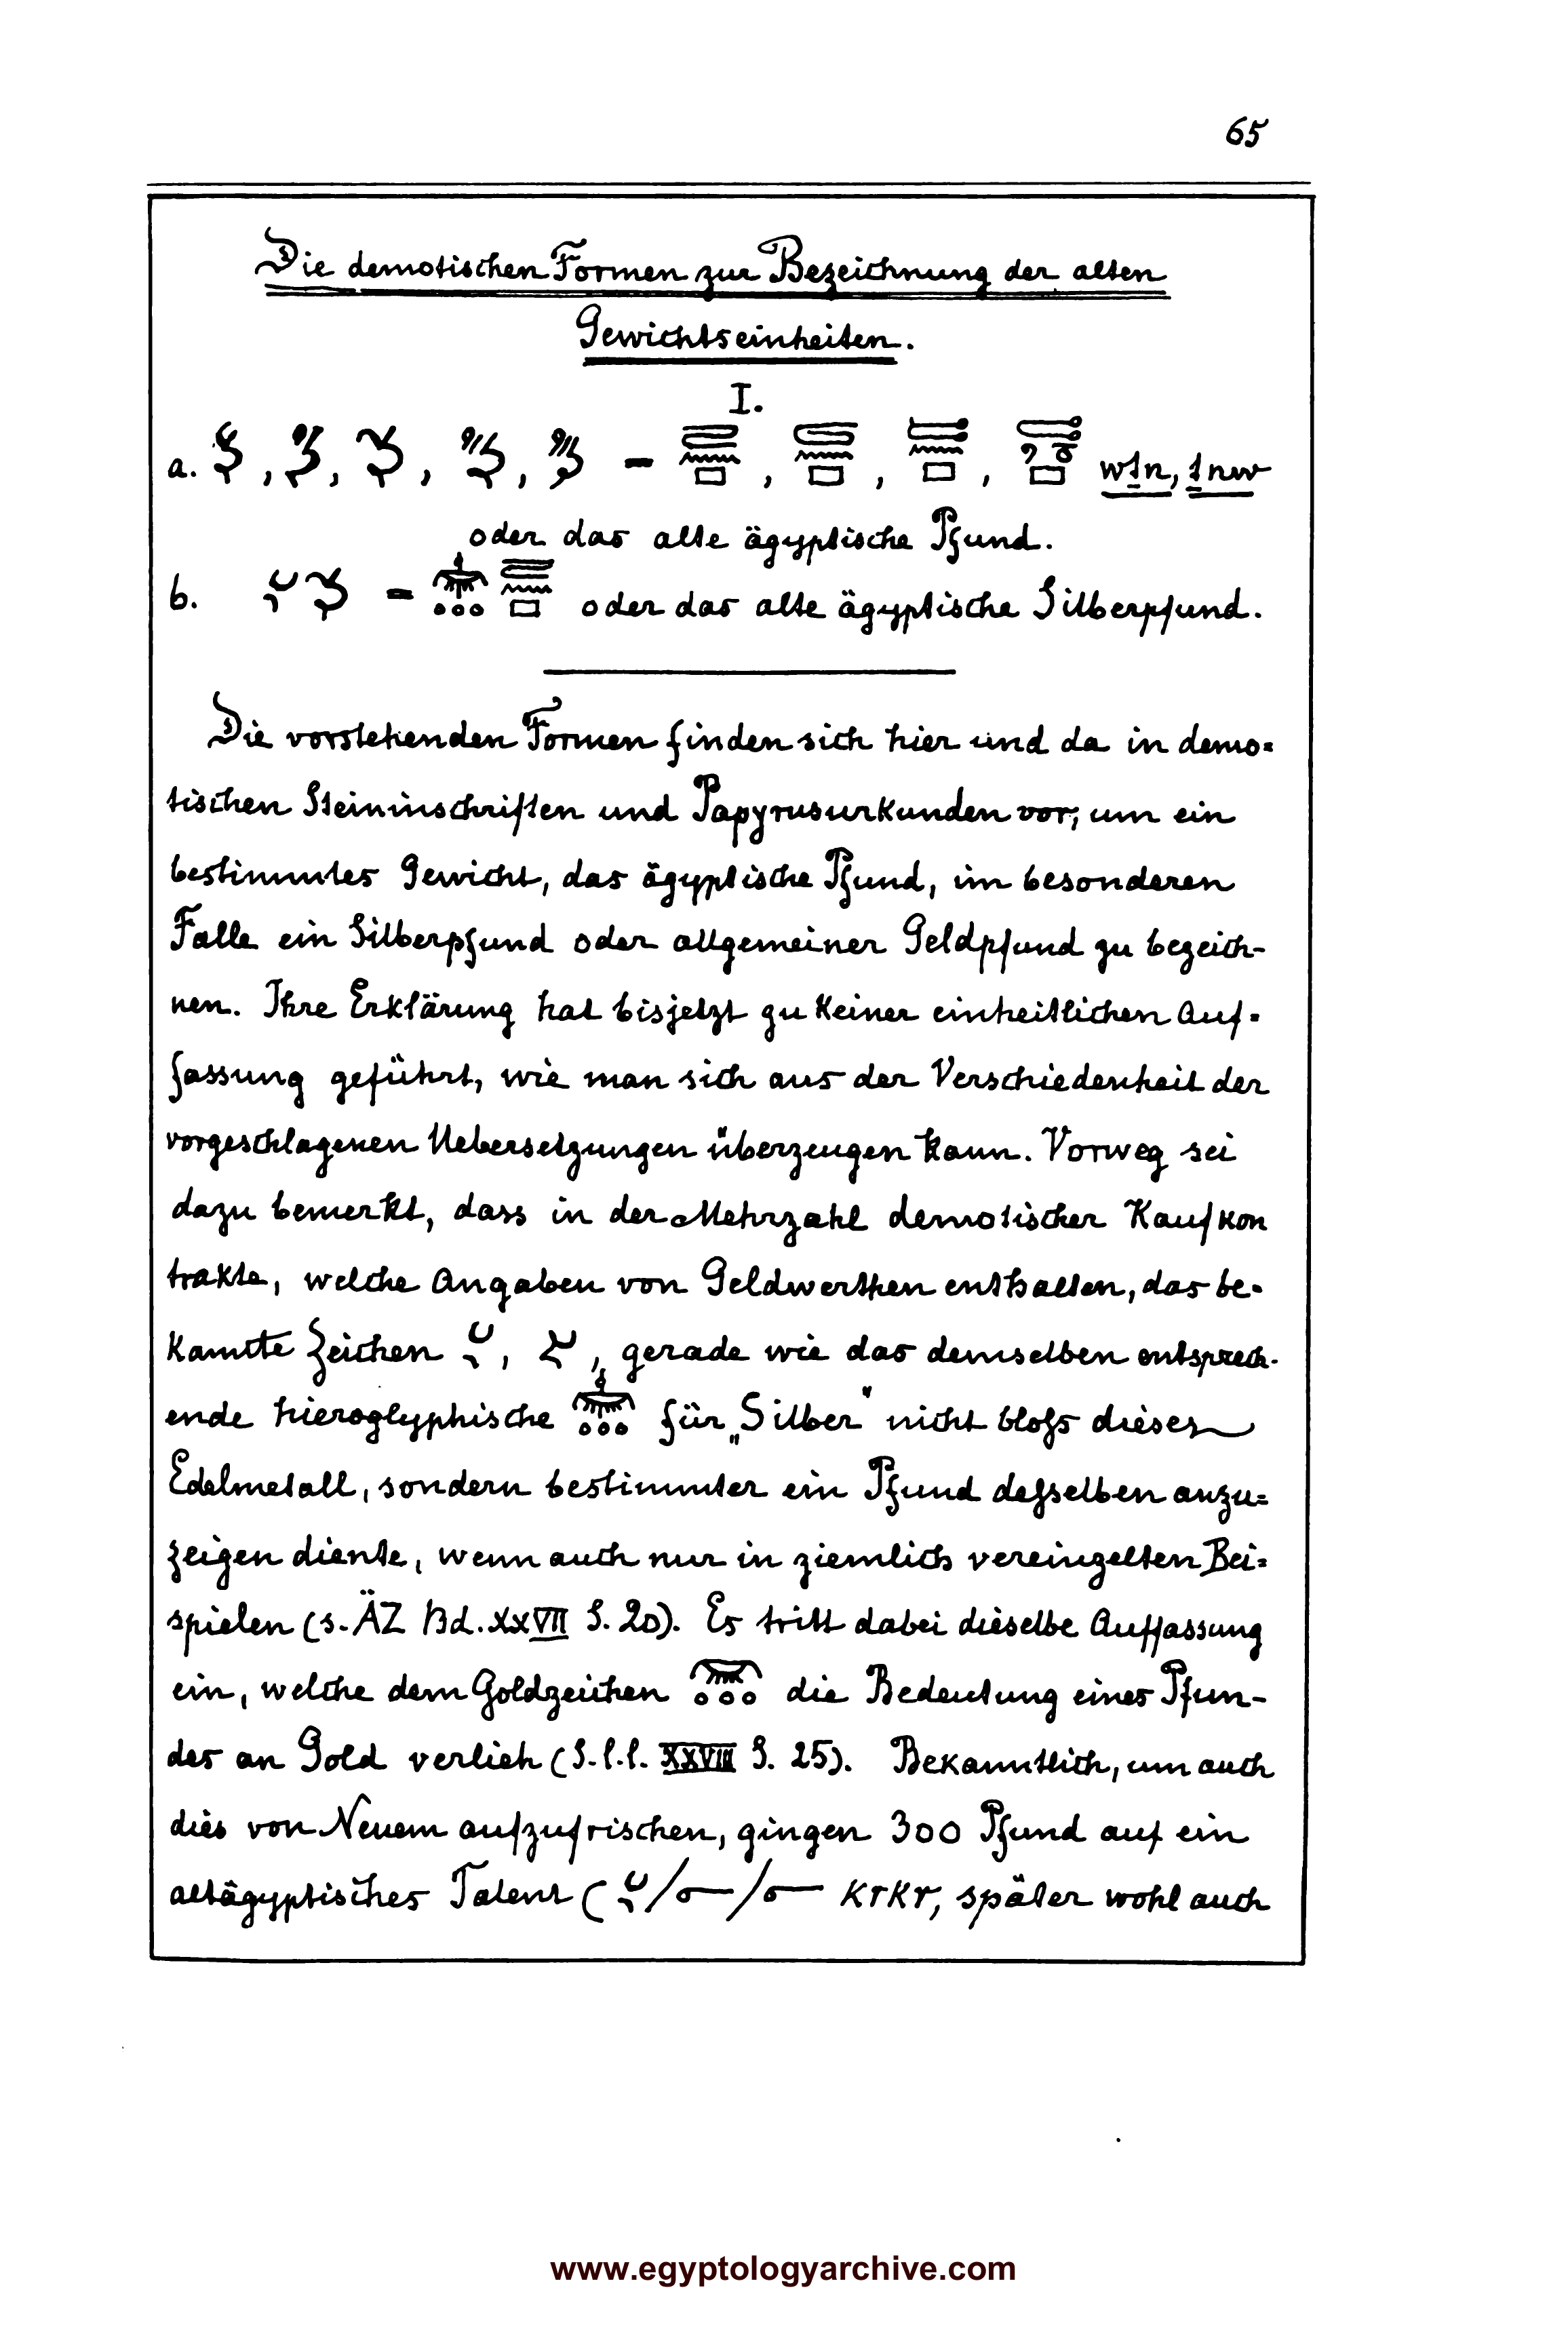 65
Die demotischen Formen zur Bezeichnung der alten
Gewichtseinheiten.
I.
a. , , , , — , , , w1n, 1nw
oder das alte ägyptische Pfund.
b. = oder das alte ägyptische Silberpfund.
Die vorstehenden Formen finden sich hier und da in demo=
tischen Steininschriften und Papyrusurkunden vor, um ein
bestimmtes Gewicht, das ägyptische Pfund, im besonderen
Falle ein Silberpfund oder allgemeiner Geldpfund zu bezeich-
nen. Ihre Erklärung hat bisjetzt zu keiner einheitlichen Auf=
fassung geführt, wie man sich aus der Verschiedenheit der
vorgeschlagenen Uebersetzungen überzeugen kann. Vorweg sei
dazu bemerkt, dass in der Mehrzahl demotischer Kaufkon
trakte, welche Angaben von Geldwerthen enthalten, das be-
kannte Zeichen , , gerade wie das demselben entsprech-
ende hieroglyphische für „Silber" nicht bloß dieses
Edelmetall, sondern bestimmter ein Pfund deßelben anzu=
zeigen diente, wenn auch nur in ziemlich vereinzelten Bei=
spielen (s. ÄZ Bd. XXVII S. 20). Es tritt dabei dieselbe Auffassung
ein, welche dem Goldzeichen die Bedeutung eines Pfun-
des an Gold verlieh (S. l. l. XXVIII S. 25). Bekanntlich, um auch
dies von Neuem aufzufrischen, gingen 300 Pfund auf ein
altägyptisches Talent ( krkr, später wohl auch
www.egyptologyarchive.com